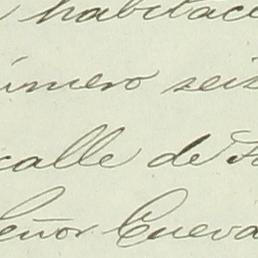 habitac
úmero seis
calle de
eñor Cueva